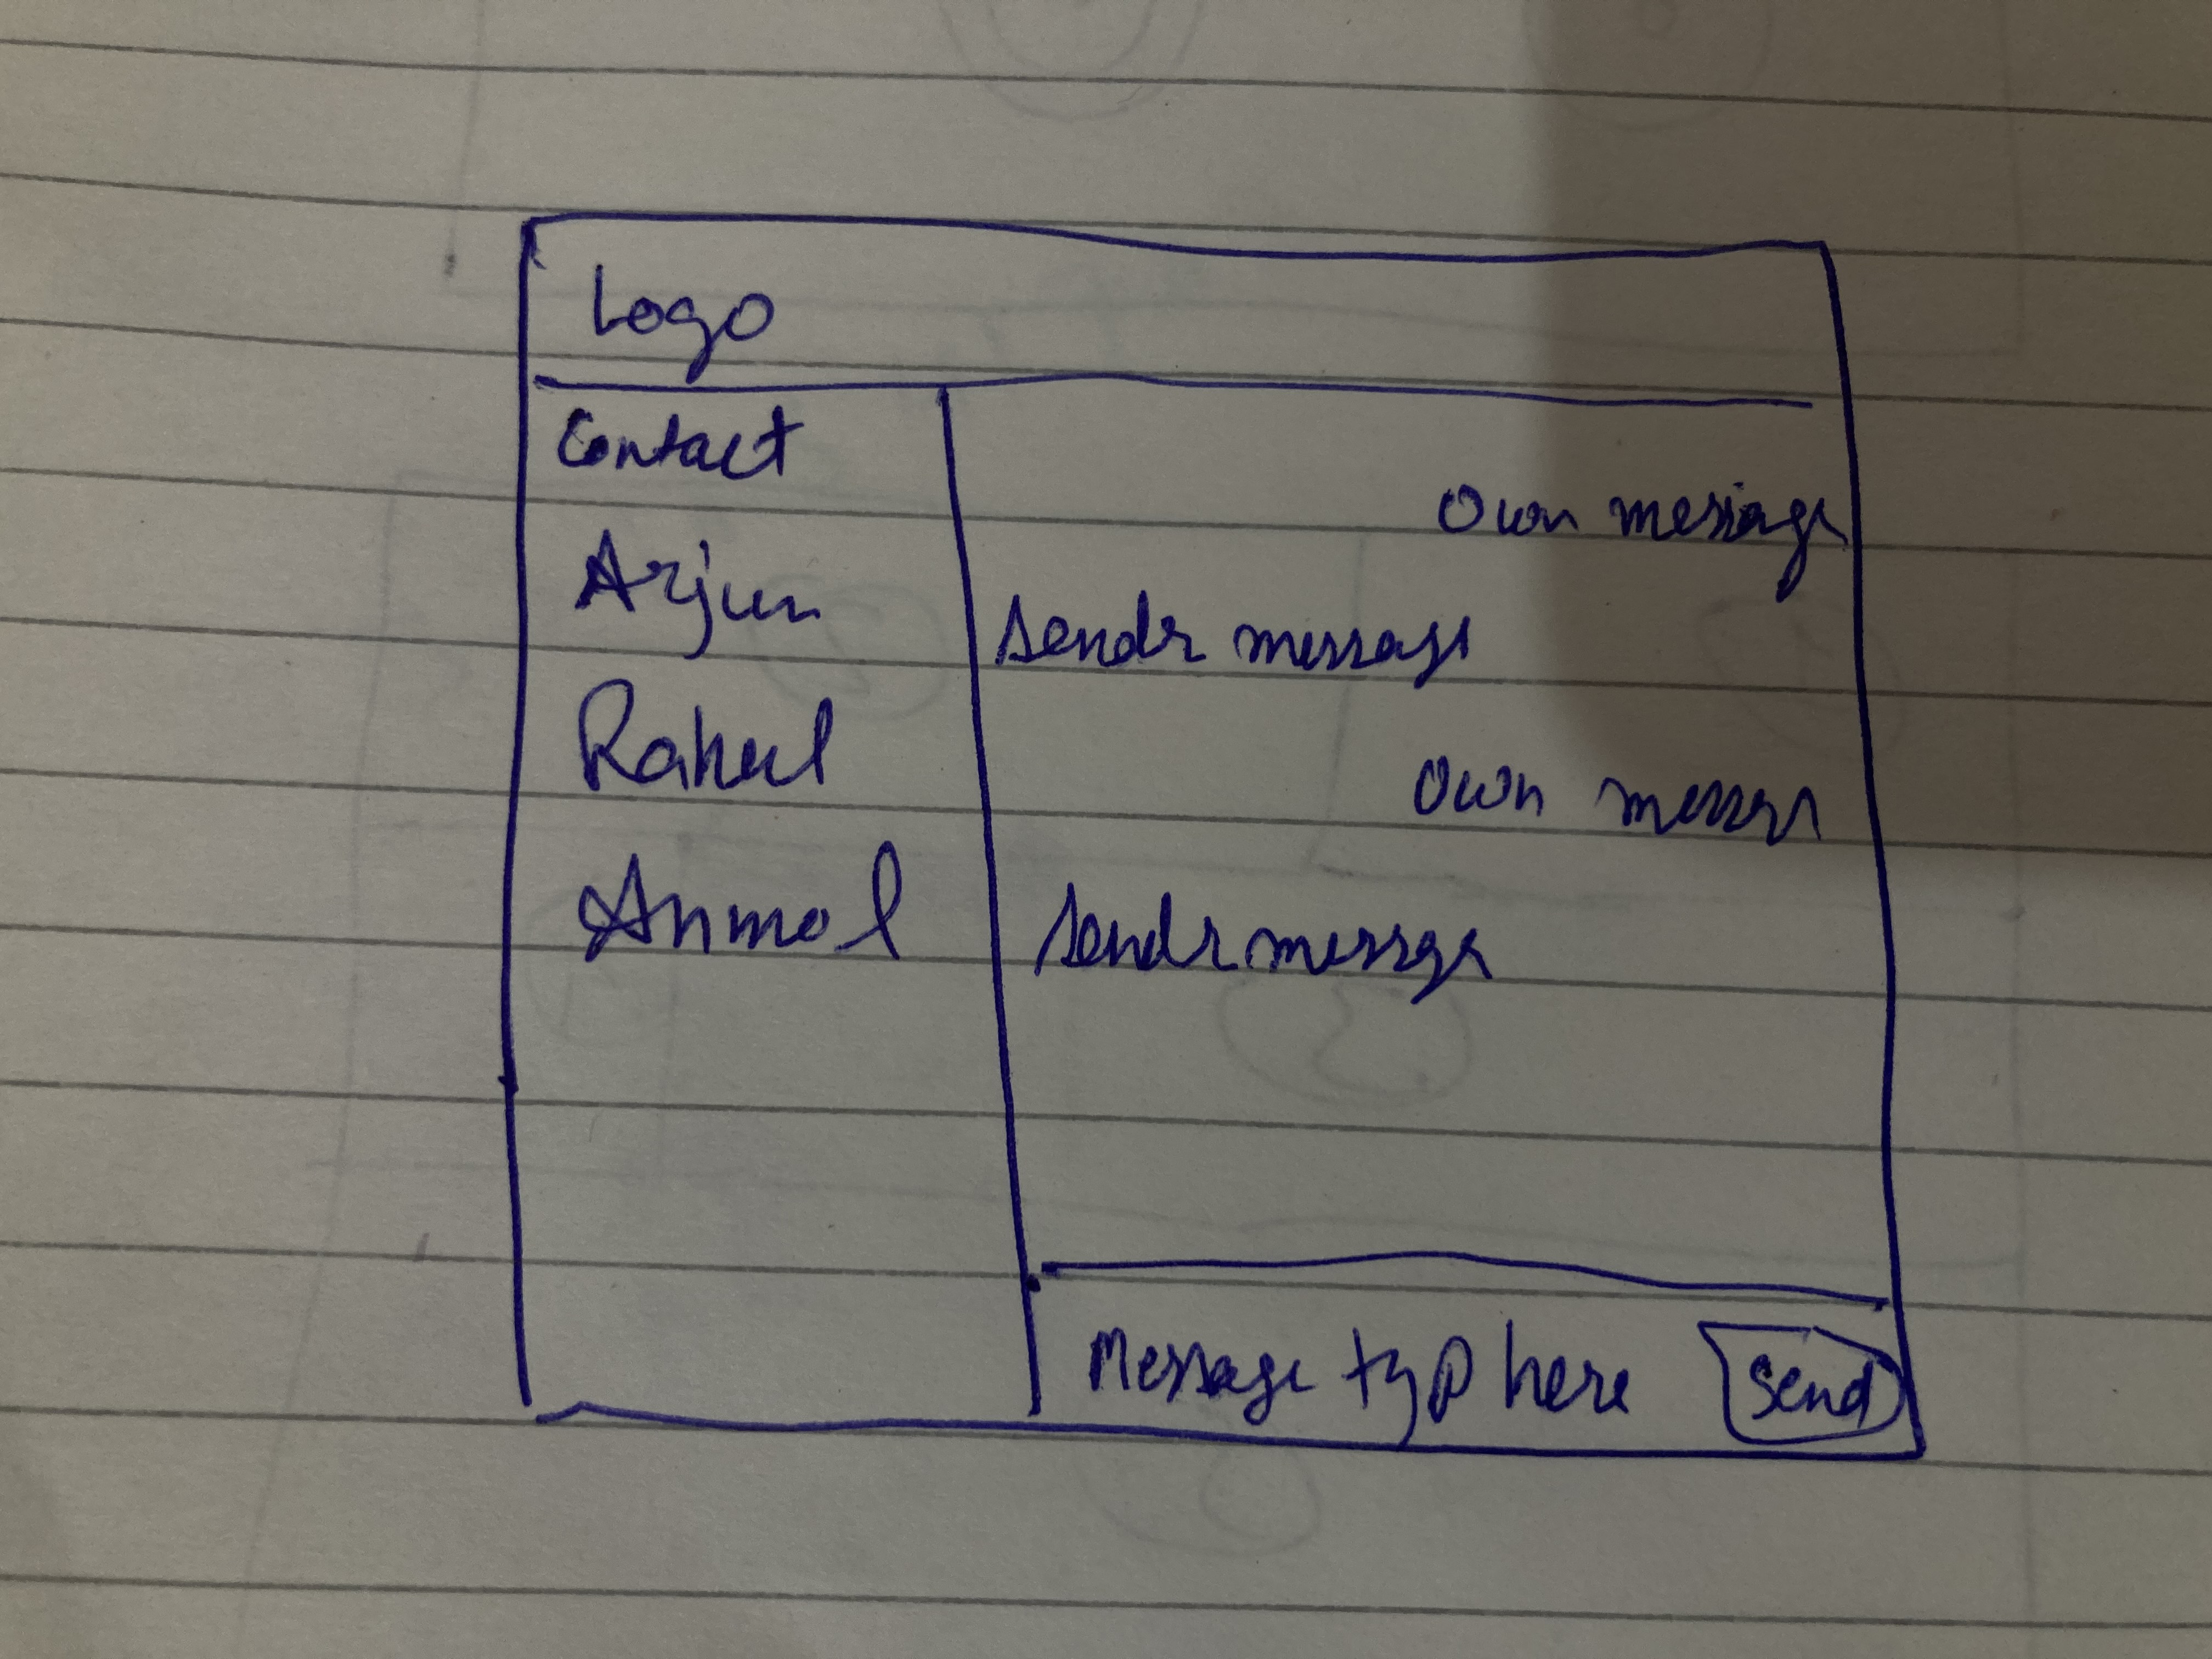 Logo
Contact
Arjun
Rahul
Anmol
Own message
Sendr message
Own
Sendr message
Message typ here
Send